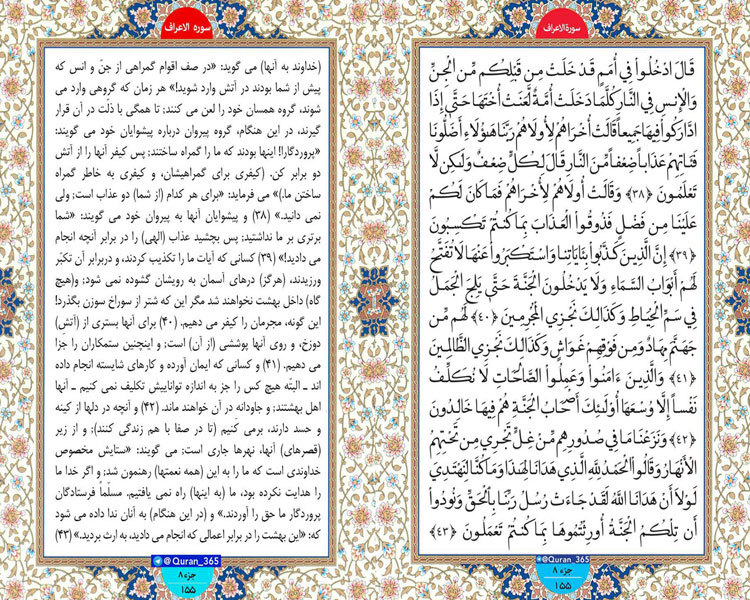 سورة الاعراف
قَالَ ادْخُلُوا فِي أُمَمٍ قَدْ خَلَتْ مِن قَبْلِكُم مِّنَ الْجِنِّ
وَالْإِنسِ فِي النَّارِ كُلَّمَا دَخَلَتْ أُمَّةٌ لَّعَنَتْ أُخْتَهَا حَتَّى إِذَا
ادَّارَكُوا فِيهَا جَمِيعاً قَالَتْ أُخْرَاهُمْ لِأُولَاهُمْ رَبَّنَا هَؤُلَاءِ أَضَلُّونَا
فَآتِهِمْ عَذَاباً ضِعْفاً مِّنَ النَّارِ قَالَ لِكُلٍّ ضِعْفٌ وَلَكِن لَّا
تَعْلَمُونَ ﴿۳۸﴾ وَقَالَتْ أُولَاهُمْ لِأُخْرَاهُمْ فَمَا كَانَ لَكُمْ
عَلَيْنَا مِن فَضْلٍ فَذُوقُوا الْعَذَابَ بِمَا كُنتُمْ تَكْسِبُونَ
﴿۳۹﴾ إِنَّ الَّذِينَ كَذَّبُوا بِآيَاتِنَا وَاسْتَكْبَرُوا عَنْهَا لَا تُفَتَّحُ
لَهُمْ أَبْوَابُ السَّمَاءِ وَلَا يَدْخُلُونَ الْجَنَّةَ حَتَّى يَلِجَ الْجَمَلُ
فِي سَمِّ الْخِيَاطِ وَكَذَلِكَ نَجْزِي الْمُجْرِمِينَ ﴿۴۰﴾ لَهُم مِّن
جَهَنَّمَ مِهَادٌ وَمِن فَوْقِهِمْ غَوَاشٍ وَكَذَلِكَ نَجْزِي الظَّالِمِينَ
﴿۴۱﴾ وَالَّذِينَ ءَامَنُوا وَعَمِلُوا الصَّالِحَاتِ لَا نُكَلِّفُ
نَفْساً إِلَّا وُسْعَهَا أُولَئِكَ أَصْحَابُ الْجَنَّةِ هُمْ فِيهَا خَالِدُونَ
﴿۴۲﴾ وَنَزَعْنَا مَا فِي صُدُورِهِم مِّنْ غِلٍّ تَجْرِي مِن تَحْتِهِمُ
الْأَنْهَارُ وَقَالُوا الْحَمْدُ لِلَّهِ الَّذِي هَدَانَا لِهَذَا وَمَا كُنَّا لِنَهْتَدِيَ
لَوْلَا أَنْ هَدَانَا اللَّهُ لَقَدْ جَاءَتْ رُسُلُ رَبِّنَا بِالْحَقِّ وَنُودُوا
أَن تِلْكُمُ الْجَنَّةُ أُورِثْتُمُوهَا بِمَا كُنتُمْ تَعْمَلُونَ ﴿۴۳﴾
@Quran_365
جزء ۸
۱۵۵
سوره الاعراف
(خداوند به آنها) می گوید: «در صف اقوام گمراهی از جنّ و انس که
پیش از شما بودند در آتش وارد شوید!» هر زمان که گروهی وارد می
شوند، گروه همسان خود را لعن می کنند؛ تا همگی با ذلّت در آن قرار
گیرند، در این هنگام، گروه پیروان درباره پیشوایان خود می گویند:
«پروردگارا! اینها بودند که ما را گمراه ساختند; پس کیفر آنها را از آتش
دو برابر کن. (کیفری برای گمراهیشان، و کیفری به خاطر گمراه
ساختن ما.)» می فرماید: «برای هر کدام (از شما) دو عذاب است; ولی
نمی دانید.» (۳۸) و پیشوایان آنها به پیروان خود می گویند: «شما
برتری بر ما نداشتید; پس بچشید عذاب (الهی) را در برابر آنچه انجام
می دادید!» (۳۹) کسانی که آیات ما را تکذیب کردند، و دربرابر آن تکبّر
ورزیدند، (هرگز) درهای آسمان به رویشان گشوده نمی شود; و(هیچ
گاه) داخل بهشت نخواهند شد مگر این که شتر از سوراخ سوزن بگذرد!
این گونه، مجرمان را کیفر می دهیم. (۴۰) برای آنها بستری از (آتش)
دوزخ، و روی آنها پوششی (از آن) است; و اینچنین ستمکاران را جزا
می دهیم. (۴۱) و کسانی که ایمان آورده و کارهای شایسته انجام داده
اند ـ البتّه هیچ کس را جز به اندازه تواناییش تکلیف نمی کنیم ـ آنها
اهل بهشتند; و جاودانه در آن خواهند ماند. (۴۲) و آنچه در دلها از کینه
و حسد دارند، برمی کَنیم (تا در صفا با هم زندگی کنند); و از زیر
(قصرهای) آنها، نهرها جاری است; می گویند: «ستایش مخصوص
خداوندی است که ما را به این (همه نعمتها) رهنمون شد; و اگر خدا ما
را هدایت نکرده بود، ما (به اینها) راه نمی یافتیم. مسلّماً فرستادگان
پروردگار ما حق را آوردند.» و (در این هنگام) به آنان ندا داده می شود
که: «این بهشت را در برابر اعمالی که انجام می دادید، به ارث بردید.» (۴۳)
@Quran_365
جزء ۸
۱۵۵